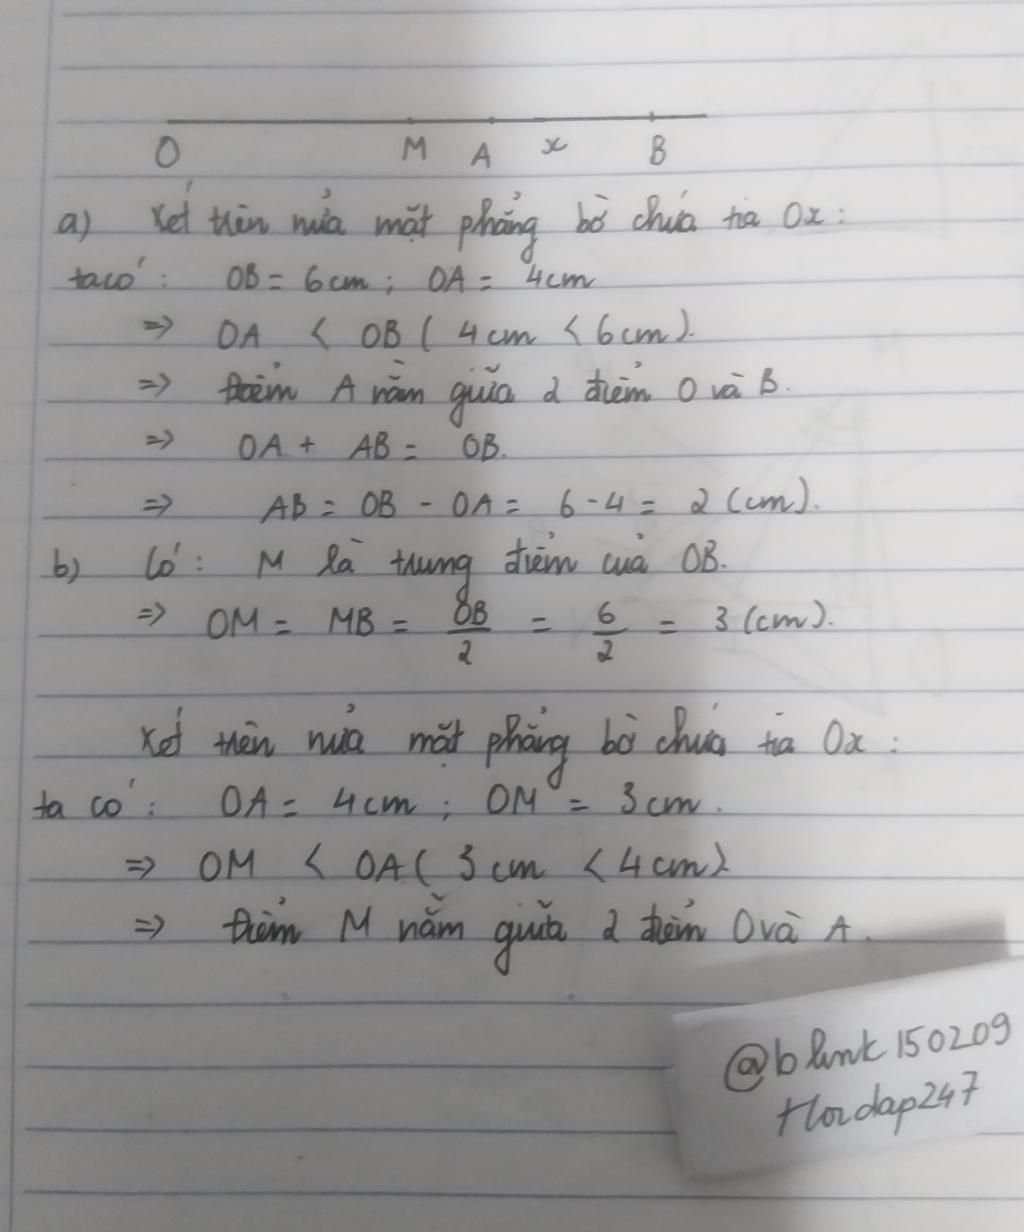 O M A x B
a) Xét trên nửa mặt phẳng bờ chứa tia Ox :
ta có : OB = 6 cm ; OA = 4 cm
=> OA < OB ( 4 cm < 6 cm ).
=> Điểm A nằm giữa 2 điểm O và B.
=> OA + AB = OB.
=> AB = OB - OA = 6 - 4 = 2 (cm).
b) Có : M là trung điểm của OB.
=> OM = MB = OB/2 = 6/2 = 3 (cm).
Xét trên nửa mặt phẳng bờ chứa tia Ox :
ta có : OA = 4 cm ; OM = 3 cm .
=> OM < OA ( 3 cm < 4 cm )
=> Điểm M nằm giữa 2 điểm O và A .
@blink150209
Hoidap247